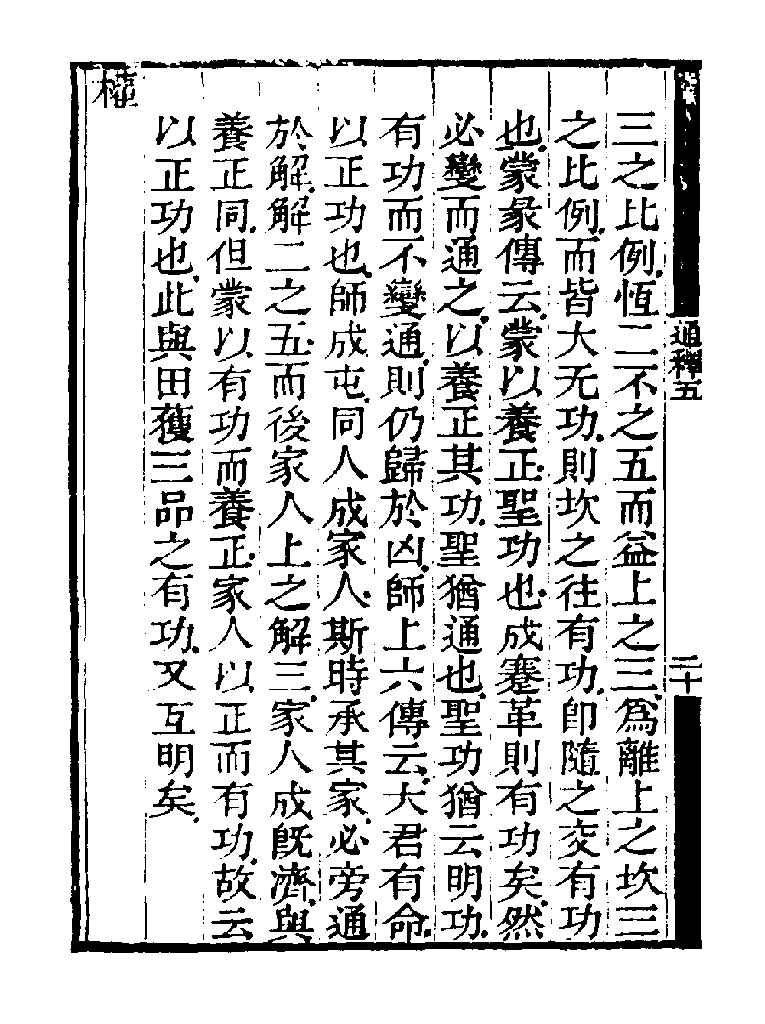 三之比例恆二不之五而益上之三為離上之坎三
之比例而皆大无功則坎之往有功即隨之交有功
也蒙彖傳云蒙以養正聖功也成蹇革則有功矣然
必變而通之以養正其功聖猶通也聖功猶云明功
有功而不變通則仍歸於凶師上六傳云大君有命
以正功也師成屯同人成家人斯時承其家必旁通
於解解二之五而後家人上之解三家人成既濟與
養正同但蒙以有功而養正家人以正而有功故云
以正功也此與田獲三品之有功又互明矣
通釋五
二十